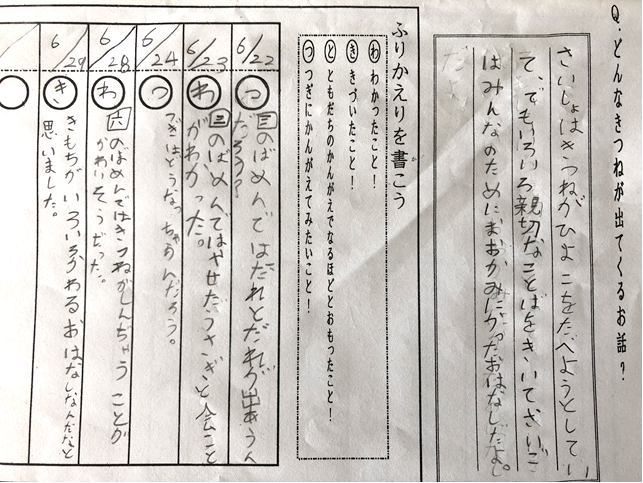 Q.どんなきつねが出てくるお話?
さいしょはきつねがひよこをたべようとしてい
て、でもいろいろ親切なことばをきいてさいご
はみんなのためにおおかみにかったおはなしだよ。
ふりかえりを書こう
わ わかったこと!
き きづいたこと!
と ともだちのかんがえでなるほどとおもったこと!
つ つぎにかんがえてみたいこと!
6/22 つ 三のばめんではだれとだれが出会うん
だろう?
6/23 わ 三のばめんではやせたうさぎと会こと
がわかった。
6/24 つ つぎはどうなっちゃうんだろう。
6/28 わ 六のばめんではきつねがしんちゃうことが
かわいそうだった。
6/29 き きもちがいろいろかわるおはなしなんだなと
思いました。